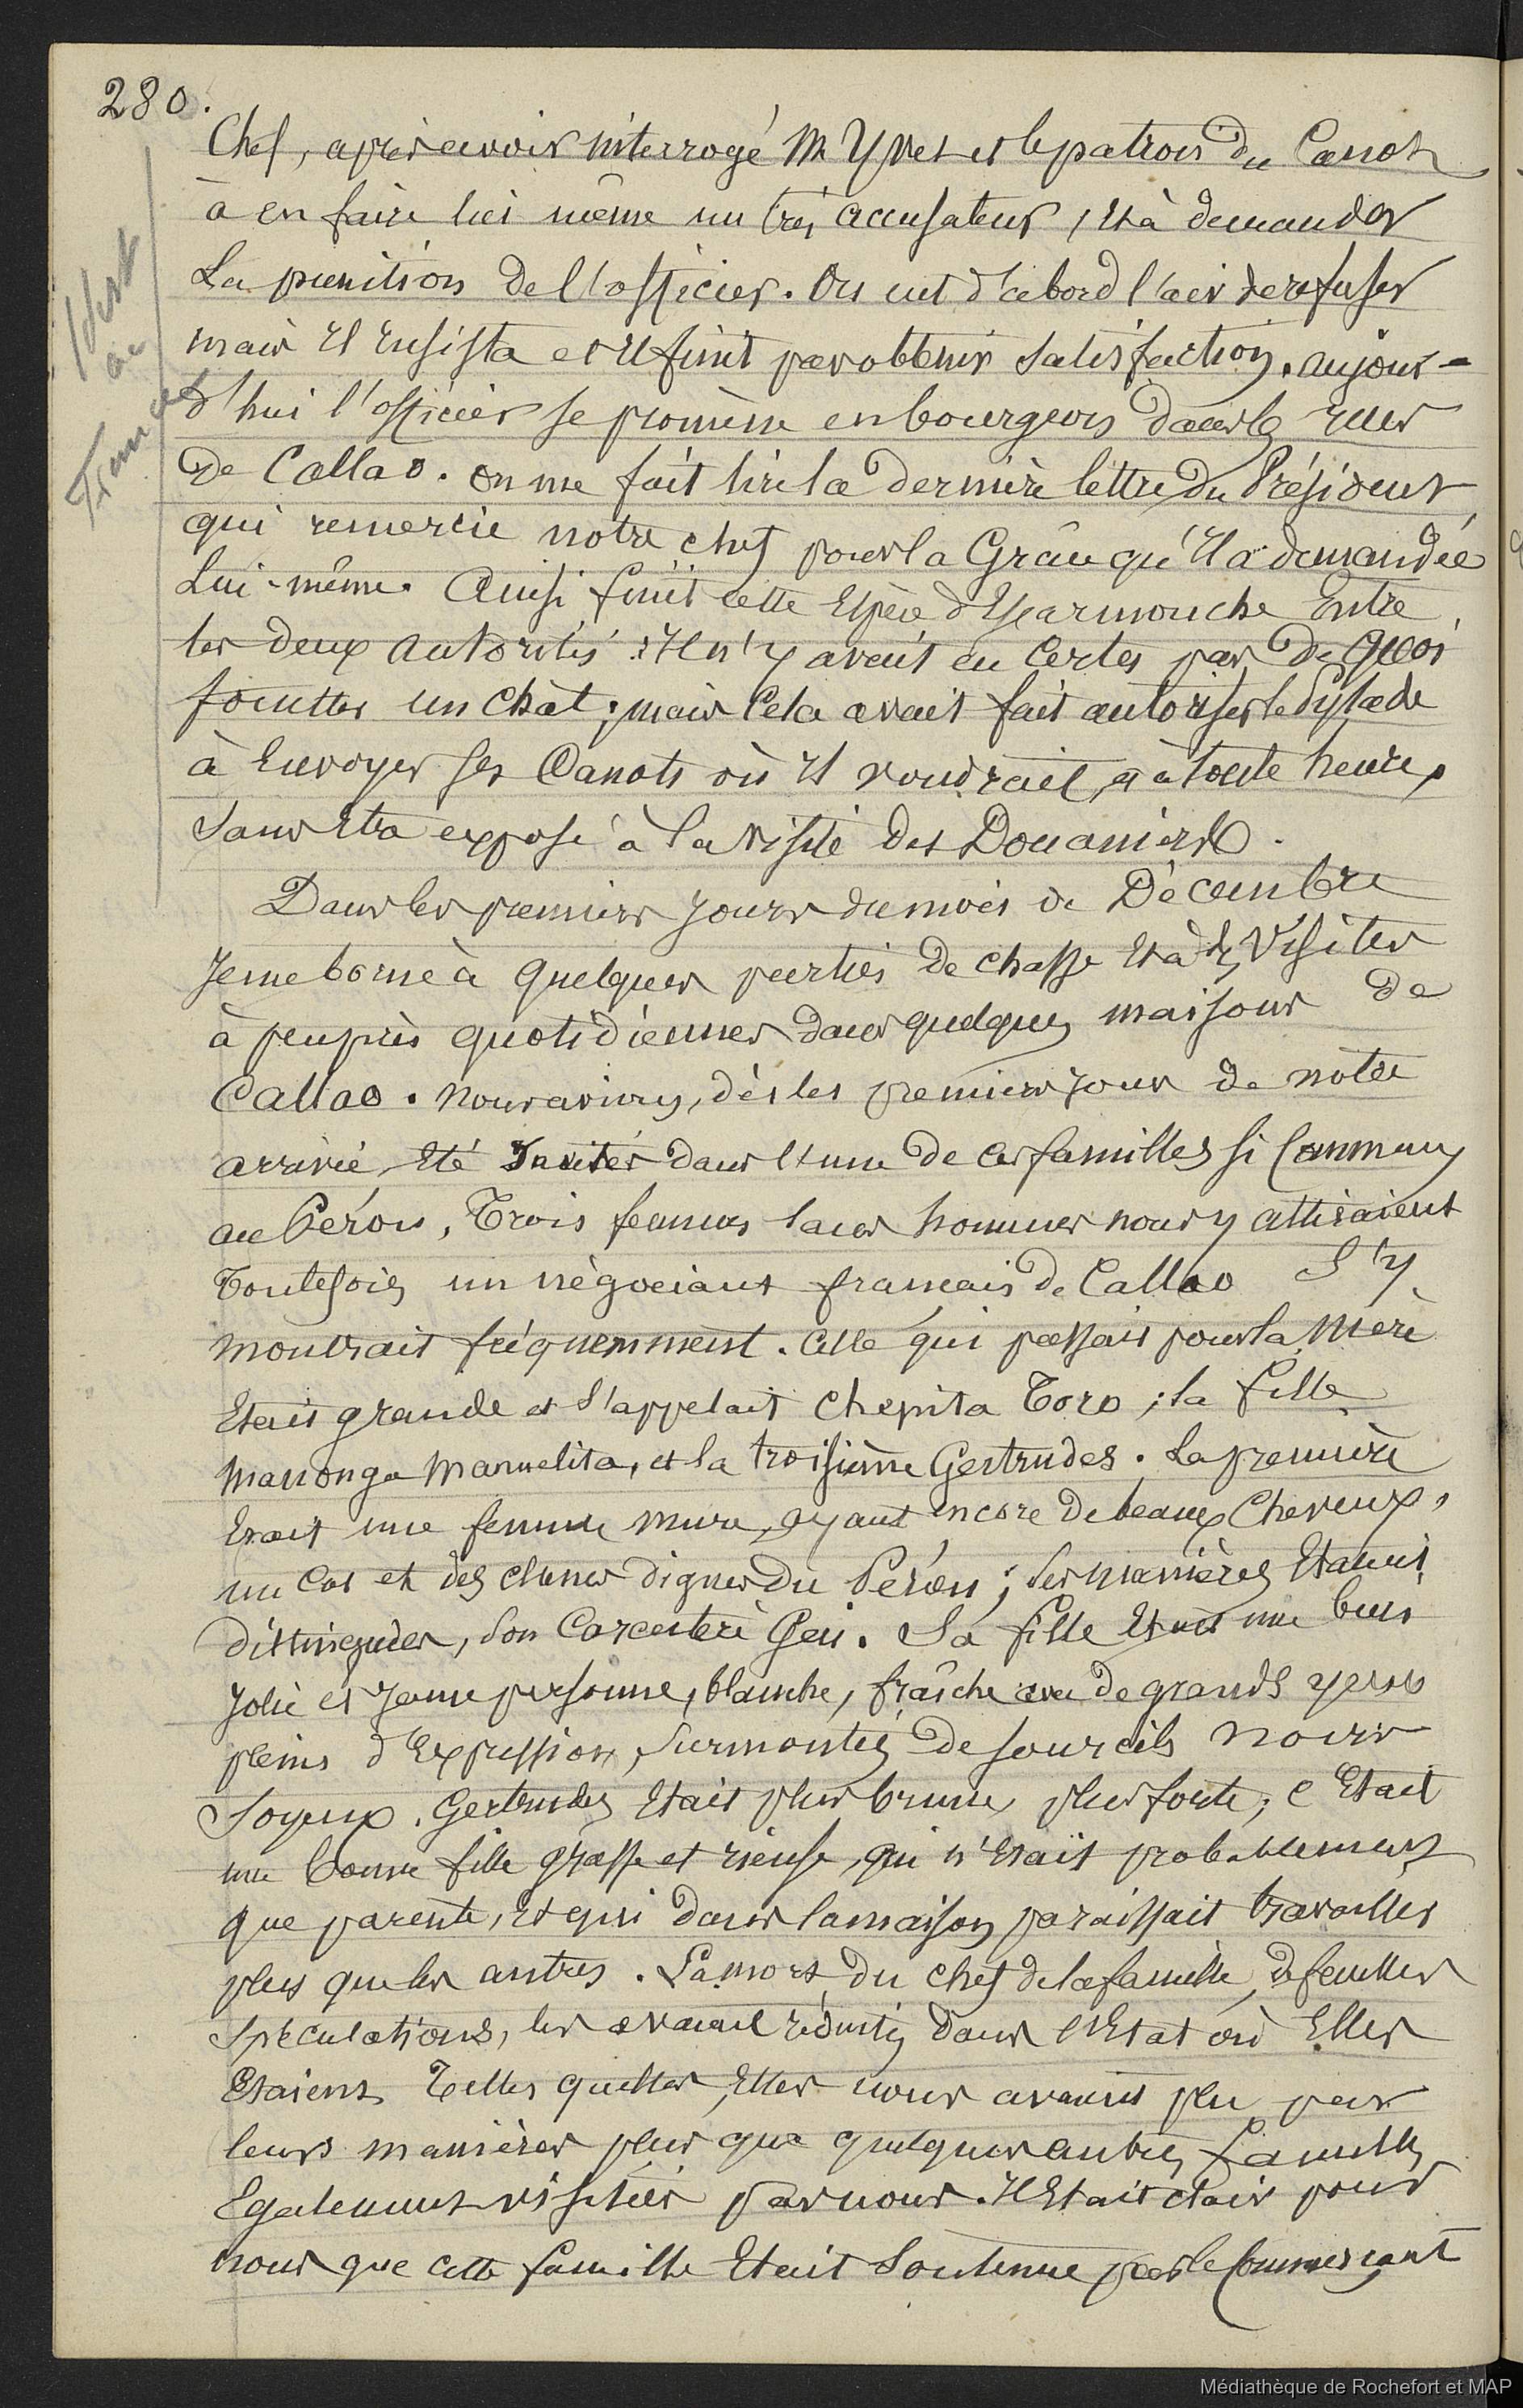 280.
Chef, après avoir interrogé M Yvet et le patron du Canot
à en faire lui même un très accusateur, et à demander
La punition de l'officier. On eut d'abord l'air de refuser
mais Il insista et Il finit par obtenir satisfaction. aujour-
d'hui l'officier se promène en bourgeois dans les rues
De Callao. on me fait lire la dernière lettre du Président
qui remercie notre chef pour la Grâce qu'Il a demandée
Lui-même. Ainsi finit cette Espèce d'Escarmouche Entre
les deux autorités : Il n'y avait eu Certes pas de quoi
fouetter un chat ; mais Cela avait fait autoriser le Pylade
à Envoyer ses Canots où Il voudrait, et à toute heure,
Sans Etre exposé à la visite des Douaniers.
Dans les premiers jours du mois de Décembre
Je me borne à quelques parties de chasse Et à des Visites
à peu près quotidiennes dans quelques maisons de
Callao. Nous avions, dès les premiers jours de notre
arrivée, Eté Invités dans l'une de ces familles si Communes
au Pérou, Trois femmes sans hommes nous y attiraient
Toutefois un négociant français de Callao S'y
montrait fréquemment. Celle qui passait pour la Mère
Etait grande et S'appelait Chepita Toro ; la fille
Manonga Manuelita, et la troisième Gertrudes. La première
Etait une femme mure, ayant encore de beaux Cheveux,
un Cou et des dignes du Pérou ; Ses manières Etaient
distinguées, Son Caractère Gai. Sa fille Etait une bien
Jolie et Jeune personne, blanche, fraîche avec de grands yeux
pleins d'Expression, Surmontés de sourcils noirs
Soyeux. Gertrudes Etait plus brune, plus forte ; c'Etait
une bonne fille grasse et rieuse, qui n'Etait probablement
que parente, Et qui dans la maison paraissait travailler
plus que les autres. La mort du chef de la famille, de fausses
Spéculations, les avaient réduites dans l'Etat où Elles
Etaient Telles quelles, Elles nous avaient plu par
leurs manières plus que quelques autres familles
Egalement visitées par nous. Il Etait clair pour
nous que cette famille Etait Soutenue par le Commerçant